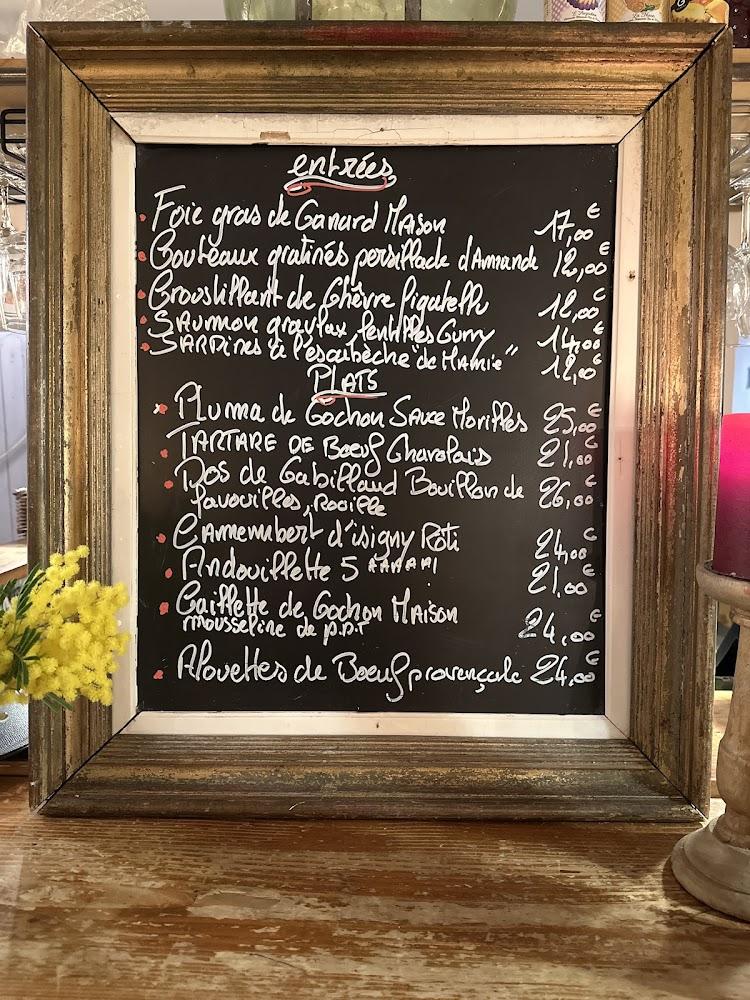 entrées
Foie gras de Canard Maison 17,00€
Couteaux gratinés persillade d'Amande 12,00€
Croustillant de Chèvre figatelli 12,00€
Saumon gravlax lentilles Curry 14,00€
Sardines à l'escabèche "de Mamie" 12,00€
PLATS
Pluma de Cochon Sauce Morilles 25,00€
TARTARE DE Bœuf Charolais 21,00€
Dos de Cabillaud Bouillon de 26,00€
favouilles, Rouille
Camembert d'isigny Rôti 24,00€
Andouillette 5 AAAAA! 21,00€
Caillette de Cochon Maison 24,00€
mousseline de p.d.T
Alouettes de Bœuf provençale 24,00€